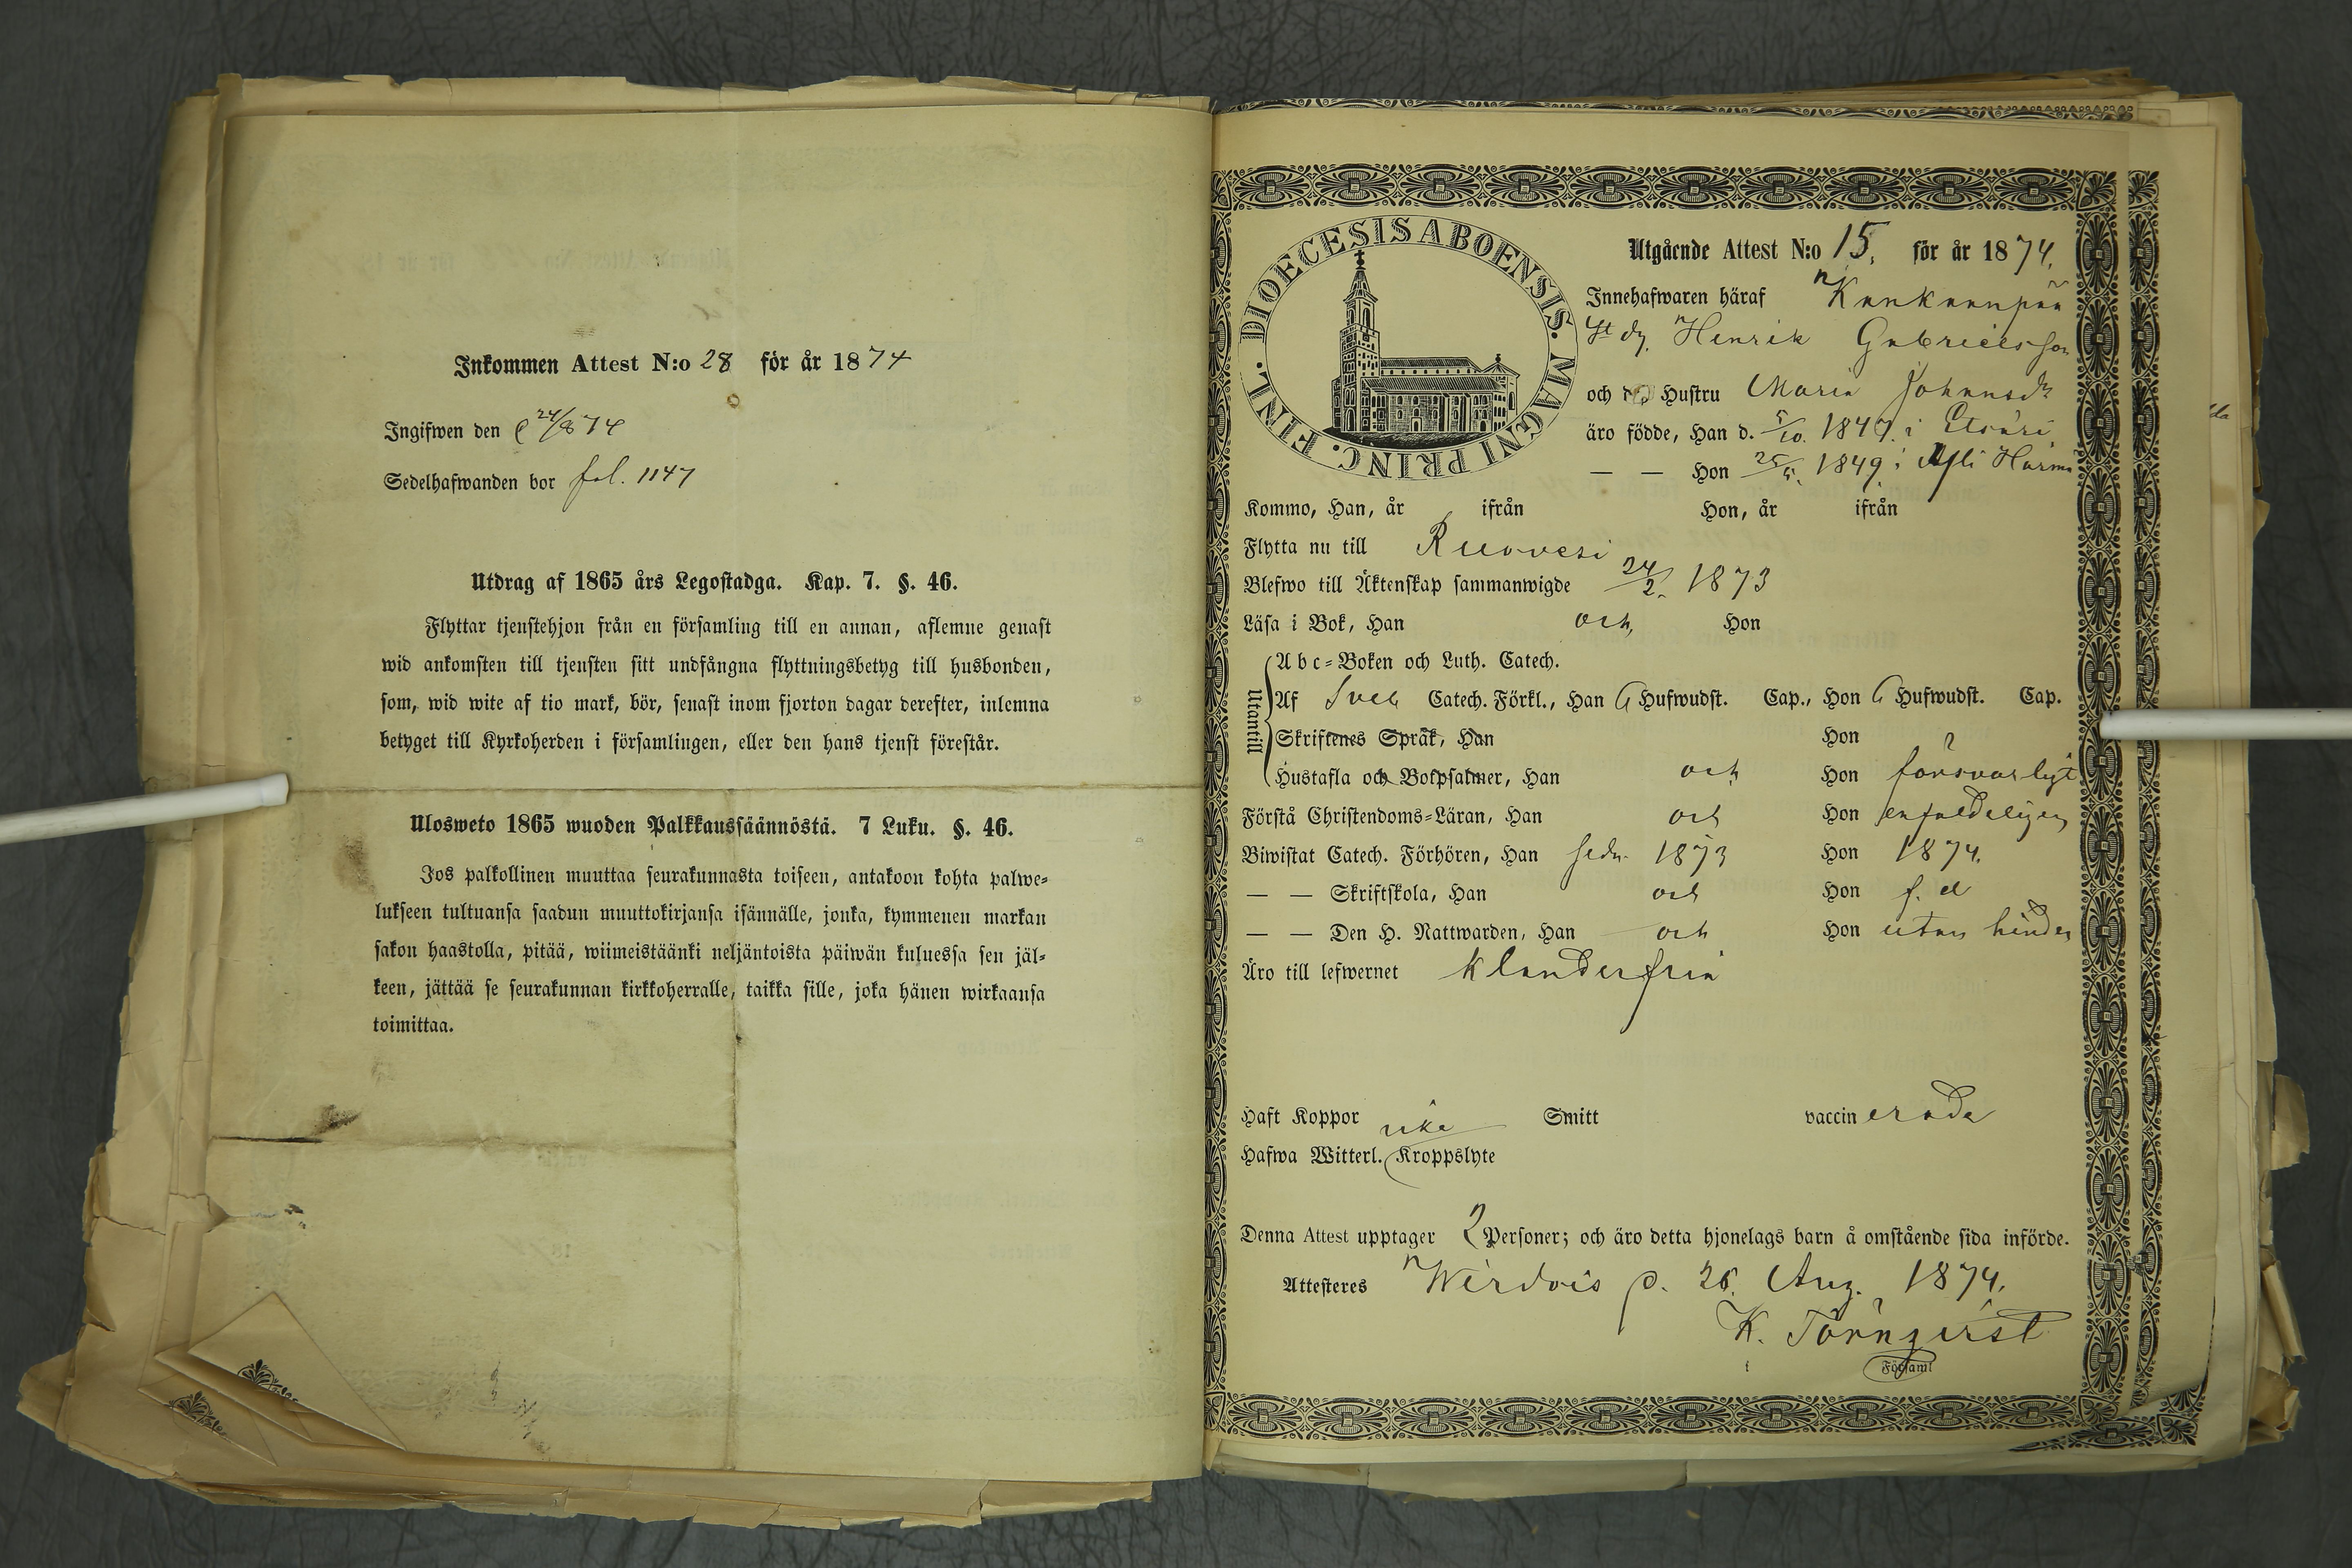 Inkommen Attest N:o 28 för år 1874
Ingifwen den 24/8 74
Sedelhafwanden bor fol. 1147
Utdrag af 1865 års Legostadga. Kap. 7. §. 46.
Flyttar tjenstehjon från en församling till en annan, aflemne genast
wid ankomsten till tjensten sitt undfångna flyttningsbetyg till husbonden,
som, wid wite af tio mark, bör, senast inom fjorton dagar derefter, inlemna
betyget till Kyrkoherden i församlingen, eller den hans tjenst förestår.
Ulosweto 1865 wuoden Palkkaussäännöstä. 7 Luku. §. 46.
Jos palkollinen muuttaa seurakunnasta toiseen, antakoon kohta palwe-
lukseen tultuansa saadun muuttokirjansa isännälle, jonka, kymmenen markan
sakon haastolla, pitää, wiimeistäänki neljäntoista päiwän kuluessa sen jäl-
keen, jättää se seurakunnan kirkkoherralle, taikka sille, joka hänen wirkaansa
toimittaa.
DIOECESIS ABOENSIS. MAGNI PRINC. FINL.
Utgående Attest N:o 15. för år 1874.
Innehafwaren häraf Kankaanpää
Henrik Gabrielsson
och Hustru Maria Johansdr
äro födde, Han d. 5/10. 1847. i Etsäri
— — Hon 25/5. 1849. i Yli Härmä
Kommo, Han, år ifrån Hon, år ifrån
Flytta nu till Ruovesi
Blefwo till Äktenskap sammanwigde 24/2. 1873
Läsa i Bok, Han och, Hon
Utantill
Abc-Boken och Luth. Catech.
Af Sveb Catech. Förkl., Han 6 Hufwudst. Cap., Hon 6 Hufwudst. Cap.
Skriftenes Språk, Han Hon
Hustafla och Botpsalmer, Han och Hon försvarligt
Förstå Christendoms-Läran, Han och Hon enfaldeligen
Biwistat Catech. Förhören, Han sedn. 1873 Hon 1874.
— — Skriftskola, Han och Hon f. d
— — Den H. Nattwarden, Han och Hon utan hinder
Äro till lefwernet klanderfria
Haft Koppor icke Smitt vaccinerade
Hafwa Witterl. Kroppslyte
Denna Attest upptager 2 Personer; och äro detta hjonelags barn å omstående sida införde.
Attesteres Wirdois p. 26. Aug. 1874.
K. Törnqvist
i Församl